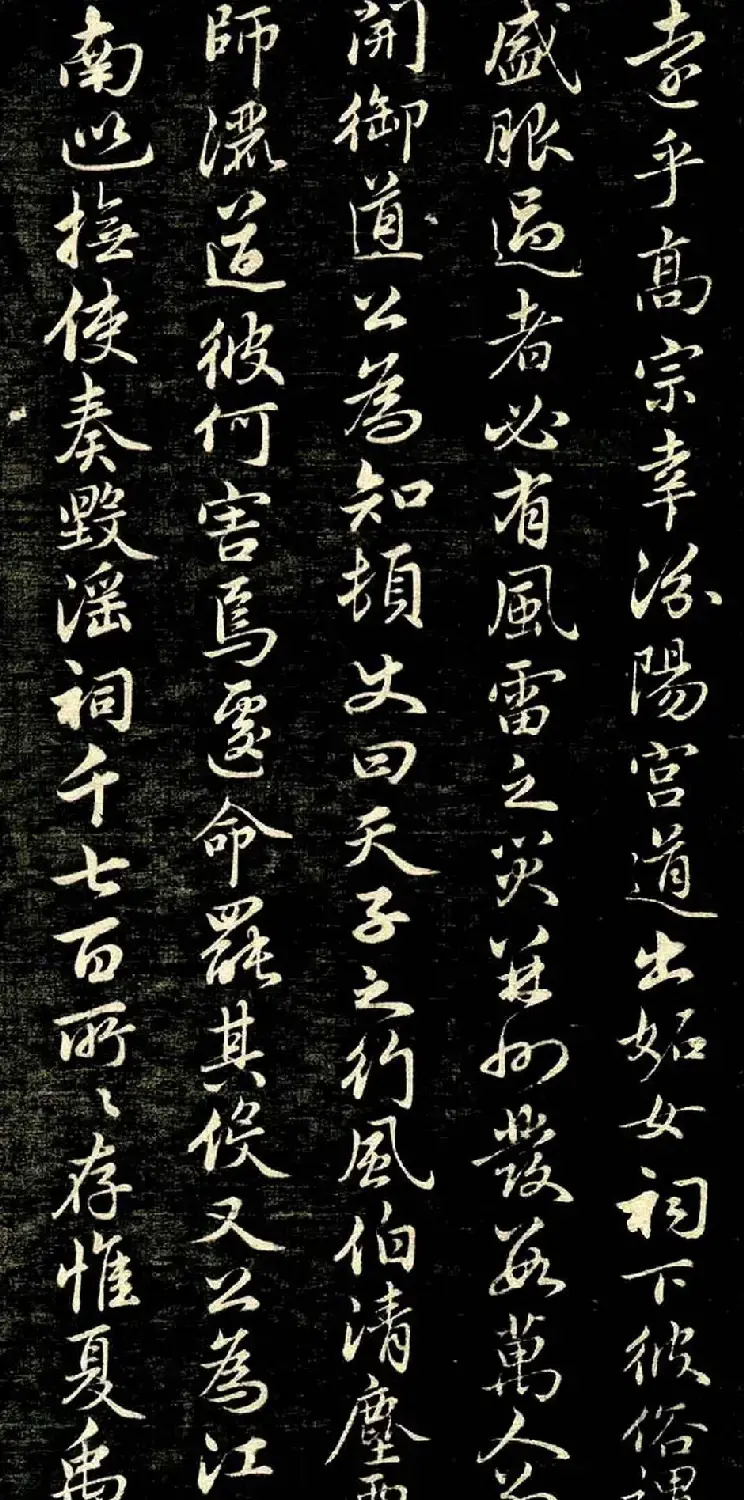 遠乎高宗幸汾陽宮道出妬女祠下彼俗
盛服過者必有風雷之災并州發數萬人
開御道公為知頓史曰天子之行風伯清塵雨
師灑道彼何害焉遽命罷其役又公為江
南巡撫使奏毀淫祠千七百所〻存惟夏禹